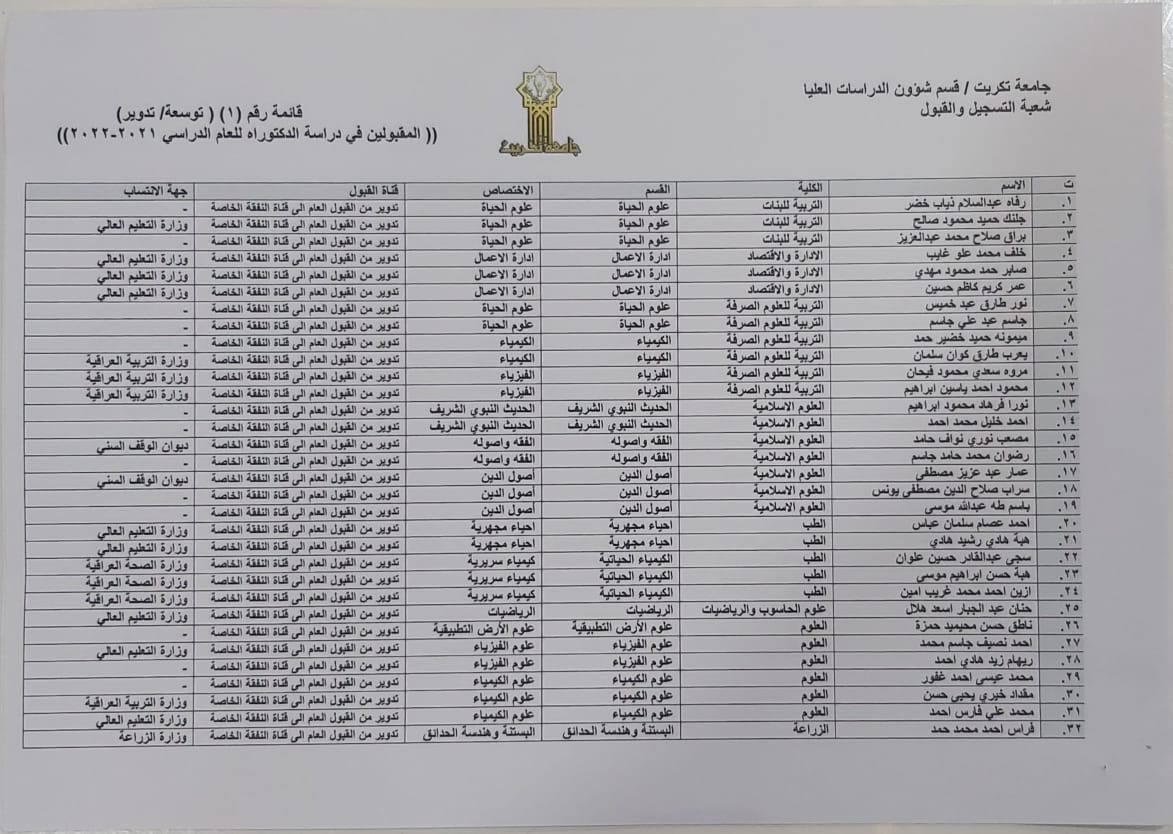 جامعة تكريت / قسم شؤون الدراسات العليا
شعبة التسجيل والقبول
جامعة تكريت
قائمة رقم (١) ( توسعة/ تدوير)
(( المقبولين في دراسة الدكتوراه للعام الدراسي ٢٠٢١-٢٠٢٢))
ت الاسم الكلية القسم الاختصاص قناة القبول جهة الانتساب
١. رفاه عبدالسلام ذياب خضر التربية للبنات علوم الحياة علوم الحياة تدوير من القبول العام الى قناة النفقة الخاصة -
٢. جلنك حميد محمود صالح التربية للبنات علوم الحياة علوم الحياة تدوير من القبول العام الى قناة النفقة الخاصة وزارة التعليم العالي
٣. براق صلاح محمد عبدالعزيز التربية للبنات علوم الحياة علوم الحياة تدوير من القبول العام الى قناة النفقة الخاصة -
٤. خلف محمد علو غايب الادارة والاقتصاد ادارة الاعمال ادارة الاعمال تدوير من القبول العام الى قناة النفقة الخاصة وزارة التعليم العالي
٥. صابر حمد محمود مهدي الادارة والاقتصاد ادارة الاعمال ادارة الاعمال تدوير من القبول العام الى قناة النفقة الخاصة وزارة التعليم العالي
٦. عمر كريم كاظم حسين الادارة والاقتصاد ادارة الاعمال ادارة الاعمال تدوير من القبول العام الى قناة النفقة الخاصة وزارة التعليم العالي
٧. نور طارق عبد خميس التربية للعلوم الصرفة علوم الحياة علوم الحياة تدوير من القبول العام الى قناة النفقة الخاصة -
٨. جاسم عبد علي جاسم التربية للعلوم الصرفة علوم الحياة علوم الحياة تدوير من القبول العام الى قناة النفقة الخاصة -
٩. ميمونه حميد خضير حمد التربية للعلوم الصرفة الكيمياء الكيمياء تدوير من القبول العام الى قناة النفقة الخاصة -
١٠. يعرب طارق كوان سلمان التربية للعلوم الصرفة الكيمياء الكيمياء تدوير من القبول العام الى قناة النفقة الخاصة وزارة التربية العراقية
١١. مروه سعدي محمود فيحان التربية للعلوم الصرفة الفيزياء الفيزياء تدوير من القبول العام الى قناة النفقة الخاصة وزارة التربية العراقية
١٢. محمود احمد ياسين ابراهيم التربية للعلوم الصرفة الفيزياء الفيزياء تدوير من القبول العام الى قناة النفقة الخاصة وزارة التربية العراقية
١٣. نورا فرهاد محمود ابراهيم العلوم الاسلامية الحديث النبوي الشريف الحديث النبوي الشريف تدوير من القبول العام الى قناة النفقة الخاصة -
١٤. احمد خليل محمد احمد العلوم الاسلامية الحديث النبوي الشريف الحديث النبوي الشريف تدوير من القبول العام الى قناة النفقة الخاصة -
١٥. مصعب نوري نواف حامد العلوم الاسلامية الفقه واصوله الفقه واصوله تدوير من القبول العام الى قناة النفقة الخاصة ديوان الوقف السني
١٦. رضوان محمد حامد جاسم العلوم الاسلامية الفقه واصوله الفقه واصوله تدوير من القبول العام الى قناة النفقة الخاصة -
١٧. عمار عبد عزيز مصطفى العلوم الاسلامية أصول الدين أصول الدين تدوير من القبول العام الى قناة النفقة الخاصة ديوان الوقف السني
١٨. سراب صلاح الدين مصطفى يونس العلوم الاسلامية أصول الدين أصول الدين تدوير من القبول العام الى قناة النفقة الخاصة -
١٩. باسم طه عبدالله موسى العلوم الاسلامية أصول الدين أصول الدين تدوير من القبول العام الى قناة النفقة الخاصة -
٢٠. احمد عصام سلمان عباس الطب احياء مجهرية احياء مجهرية تدوير من القبول العام الى قناة النفقة الخاصة وزارة التعليم العالي
٢١. هبة هادي رشيد هادي الطب احياء مجهرية احياء مجهرية تدوير من القبول العام الى قناة النفقة الخاصة وزارة التعليم العالي
٢٢. سجى عبدالقادر حسين علوان الطب الكيمياء الحياتية كيمياء سريرية تدوير من القبول العام الى قناة النفقة الخاصة وزارة الصحة العراقية
٢٣. هبة حسن ابراهيم موسى الطب الكيمياء الحياتية كيمياء سريرية تدوير من القبول العام الى قناة النفقة الخاصة وزارة الصحة العراقية
٢٤. ازين احمد محمد غريب امين الطب الكيمياء الحياتية كيمياء سريرية تدوير من القبول العام الى قناة النفقة الخاصة وزارة الصحة العراقية
٢٥. حنان عبد الجبار اسعد هلال علوم الحاسوب والرياضيات الرياضيات الرياضيات تدوير من القبول العام الى قناة النفقة الخاصة وزارة التعليم العالي
٢٦. ناطق حسن محيميد حمزة العلوم علوم الأرض التطبيقية علوم الأرض التطبيقية تدوير من القبول العام الى قناة النفقة الخاصة -
٢٧. احمد نصيف جاسم محمد العلوم علوم الفيزياء علوم الفيزياء تدوير من القبول العام الى قناة النفقة الخاصة وزارة التعليم العالي
٢٨. ريهام زيد هادي احمد العلوم علوم الفيزياء علوم الفيزياء تدوير من القبول العام الى قناة النفقة الخاصة -
٢٩. محمد عيسى احمد غفور العلوم علوم الكيمياء علوم الكيمياء تدوير من القبول العام الى قناة النفقة الخاصة -
٣٠. مقداد خيري يحيى حسن العلوم علوم الكيمياء علوم الكيمياء تدوير من القبول العام الى قناة النفقة الخاصة وزارة التربية العراقية
٣١. محمد علي فارس احمد العلوم علوم الكيمياء علوم الكيمياء تدوير من القبول العام الى قناة النفقة الخاصة وزارة التعليم العالي
٣٢. فراس احمد محمد حمد الزراعة البستنة وهندسة الحدائق البستنة وهندسة الحدائق تدوير من القبول العام الى قناة النفقة الخاصة وزارة الزراعة